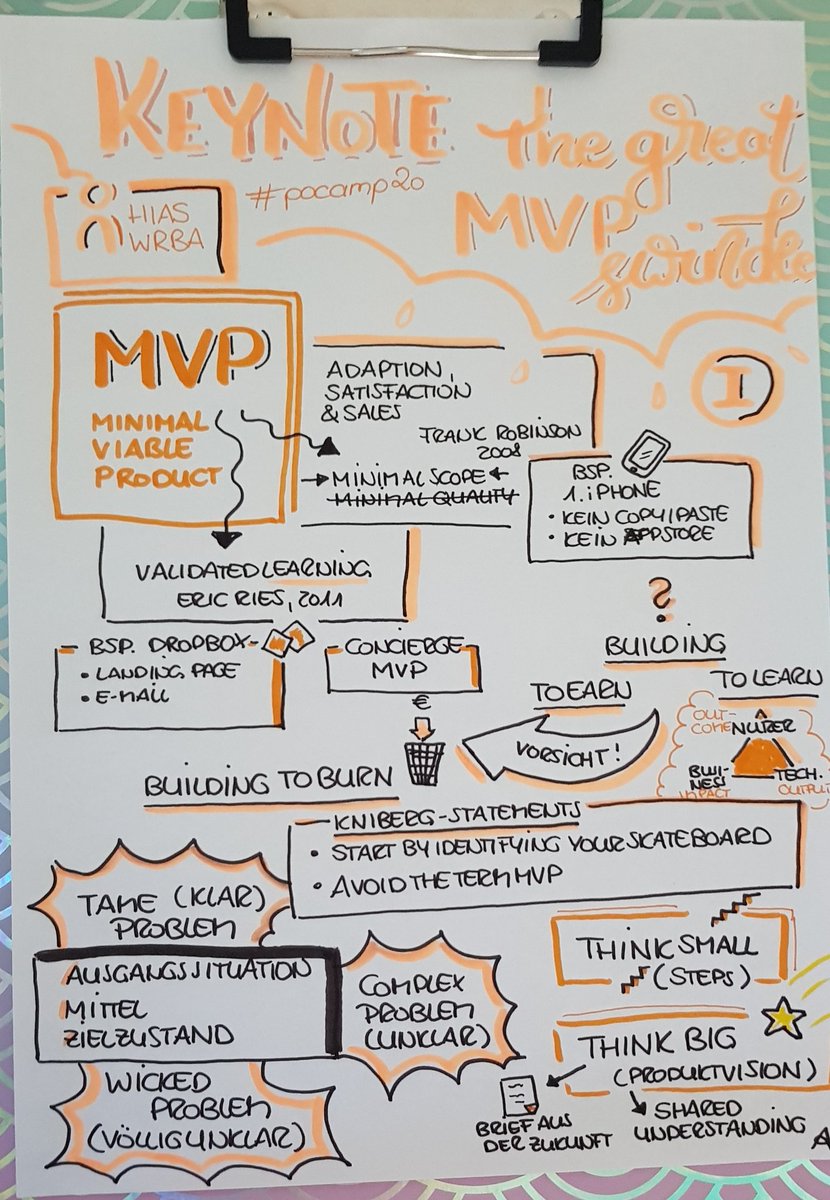 KEYNOTE the great
MVP
swindle
#pocamp20
HIAS
WRBA
MVP
MINIMAL
VIABLE
PRODUCT
ADAPTION,
SATISFACTION
& SALES
FRANK ROBINSON
2008
MINIMAL SCOPE
MINIMAL QUALITY
I
BSP.
1. iPHONE
• KEIN COPY/PASTE
• KEIN APPSTORE
VALIDATED LEARNING
ERIC RIES, 2011
BSP. DROPBOX
• LANDING PAGE
• E-MAIL
CONCIERGE
MVP
€
?
BUILDING
TO EARN
TO LEARN
VORSICHT!
OUT-
COME
NUTZER
BUI-
NESS
IMPACT
TECH.
OUTPUT
BUILDING TO BURN
KNIBERG-STATEMENTS
• START BY IDENTIFYING YOUR SKATEBOARD
• AVOID THE TERM MVP
TAME (KLAR)
PROBLEM
AUSGANGSSITUATION
MITTEL
ZIELZUSTAND
COMPLEX
PROBLEM
(UNKLAR)
WICKED
PROBLEM
(VÖLLIG UNKLAR)
THINK SMALL
(STEPS)
THINK BIG
(PRODUCTVISION)
BRIEF AUS
DER ZUKUNFT
SHARED
UNDERSTANDING